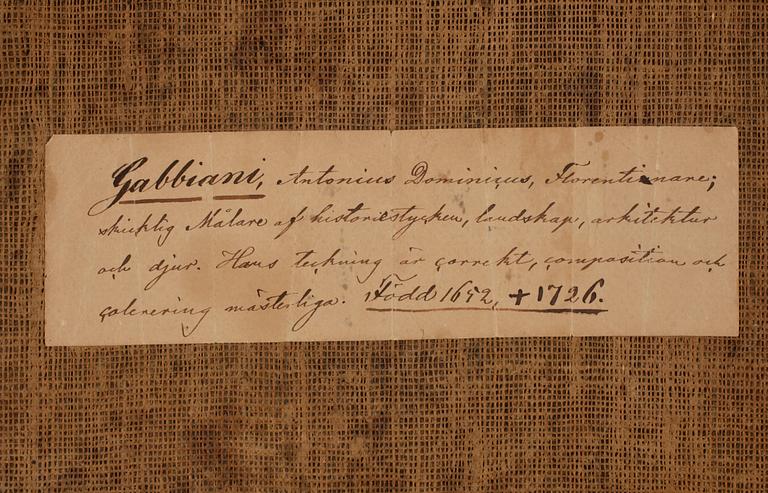 Gabbiani, Antonius Dominicus, Florentinare;
skicklig Målare af historiestycken, landskap, arkitektur
och djur. Hans teckning är correkt, composition och
colorering mästerliga. Född 1652, +1726.